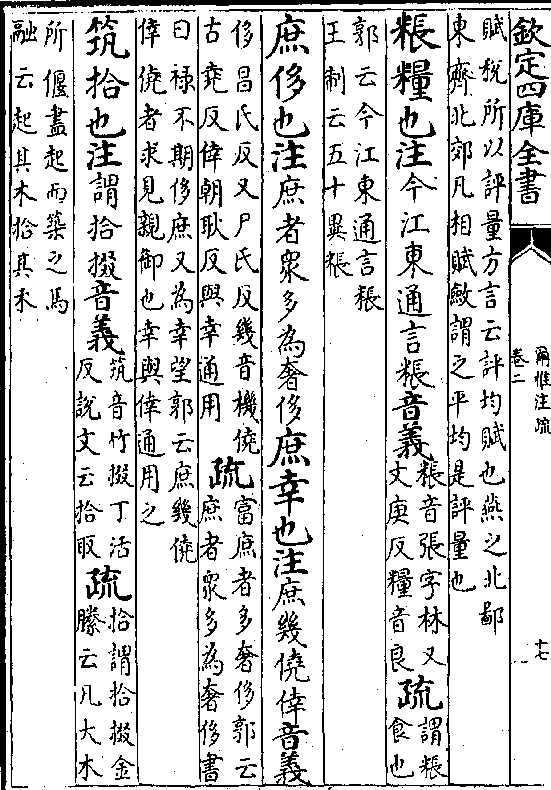 欽定四庫全書
爾雅注疏
卷二
十七
賦稅所以評量方言云評均賦也燕之北鄙
東齊北郊凡相賦斂謂之平均是評量也
粻糧也注今江東通言粻音義粻音張字林又丈庚反糧音良疏謂粻食也
郭云今江東通言粻
王制云五十異粻
庶侈也注庶者衆多為奢侈庶幸也注庶幾僥倖音義
侈昌氏反又尸氏反幾音機僥古堯反倖朝耿反與幸通用疏富庶者多奢侈郭云庶者衆多為奢侈書
曰祿不期侈庶又為幸望郭云庶幾僥
倖僥者求見親御也幸與倖通用之
筑拾也注謂拾掇音義筑音竹掇丁活反說文云拾取疏拾謂拾掇金縢云凡大木
所偃盡起而築之馬
融云起其木拾其禾